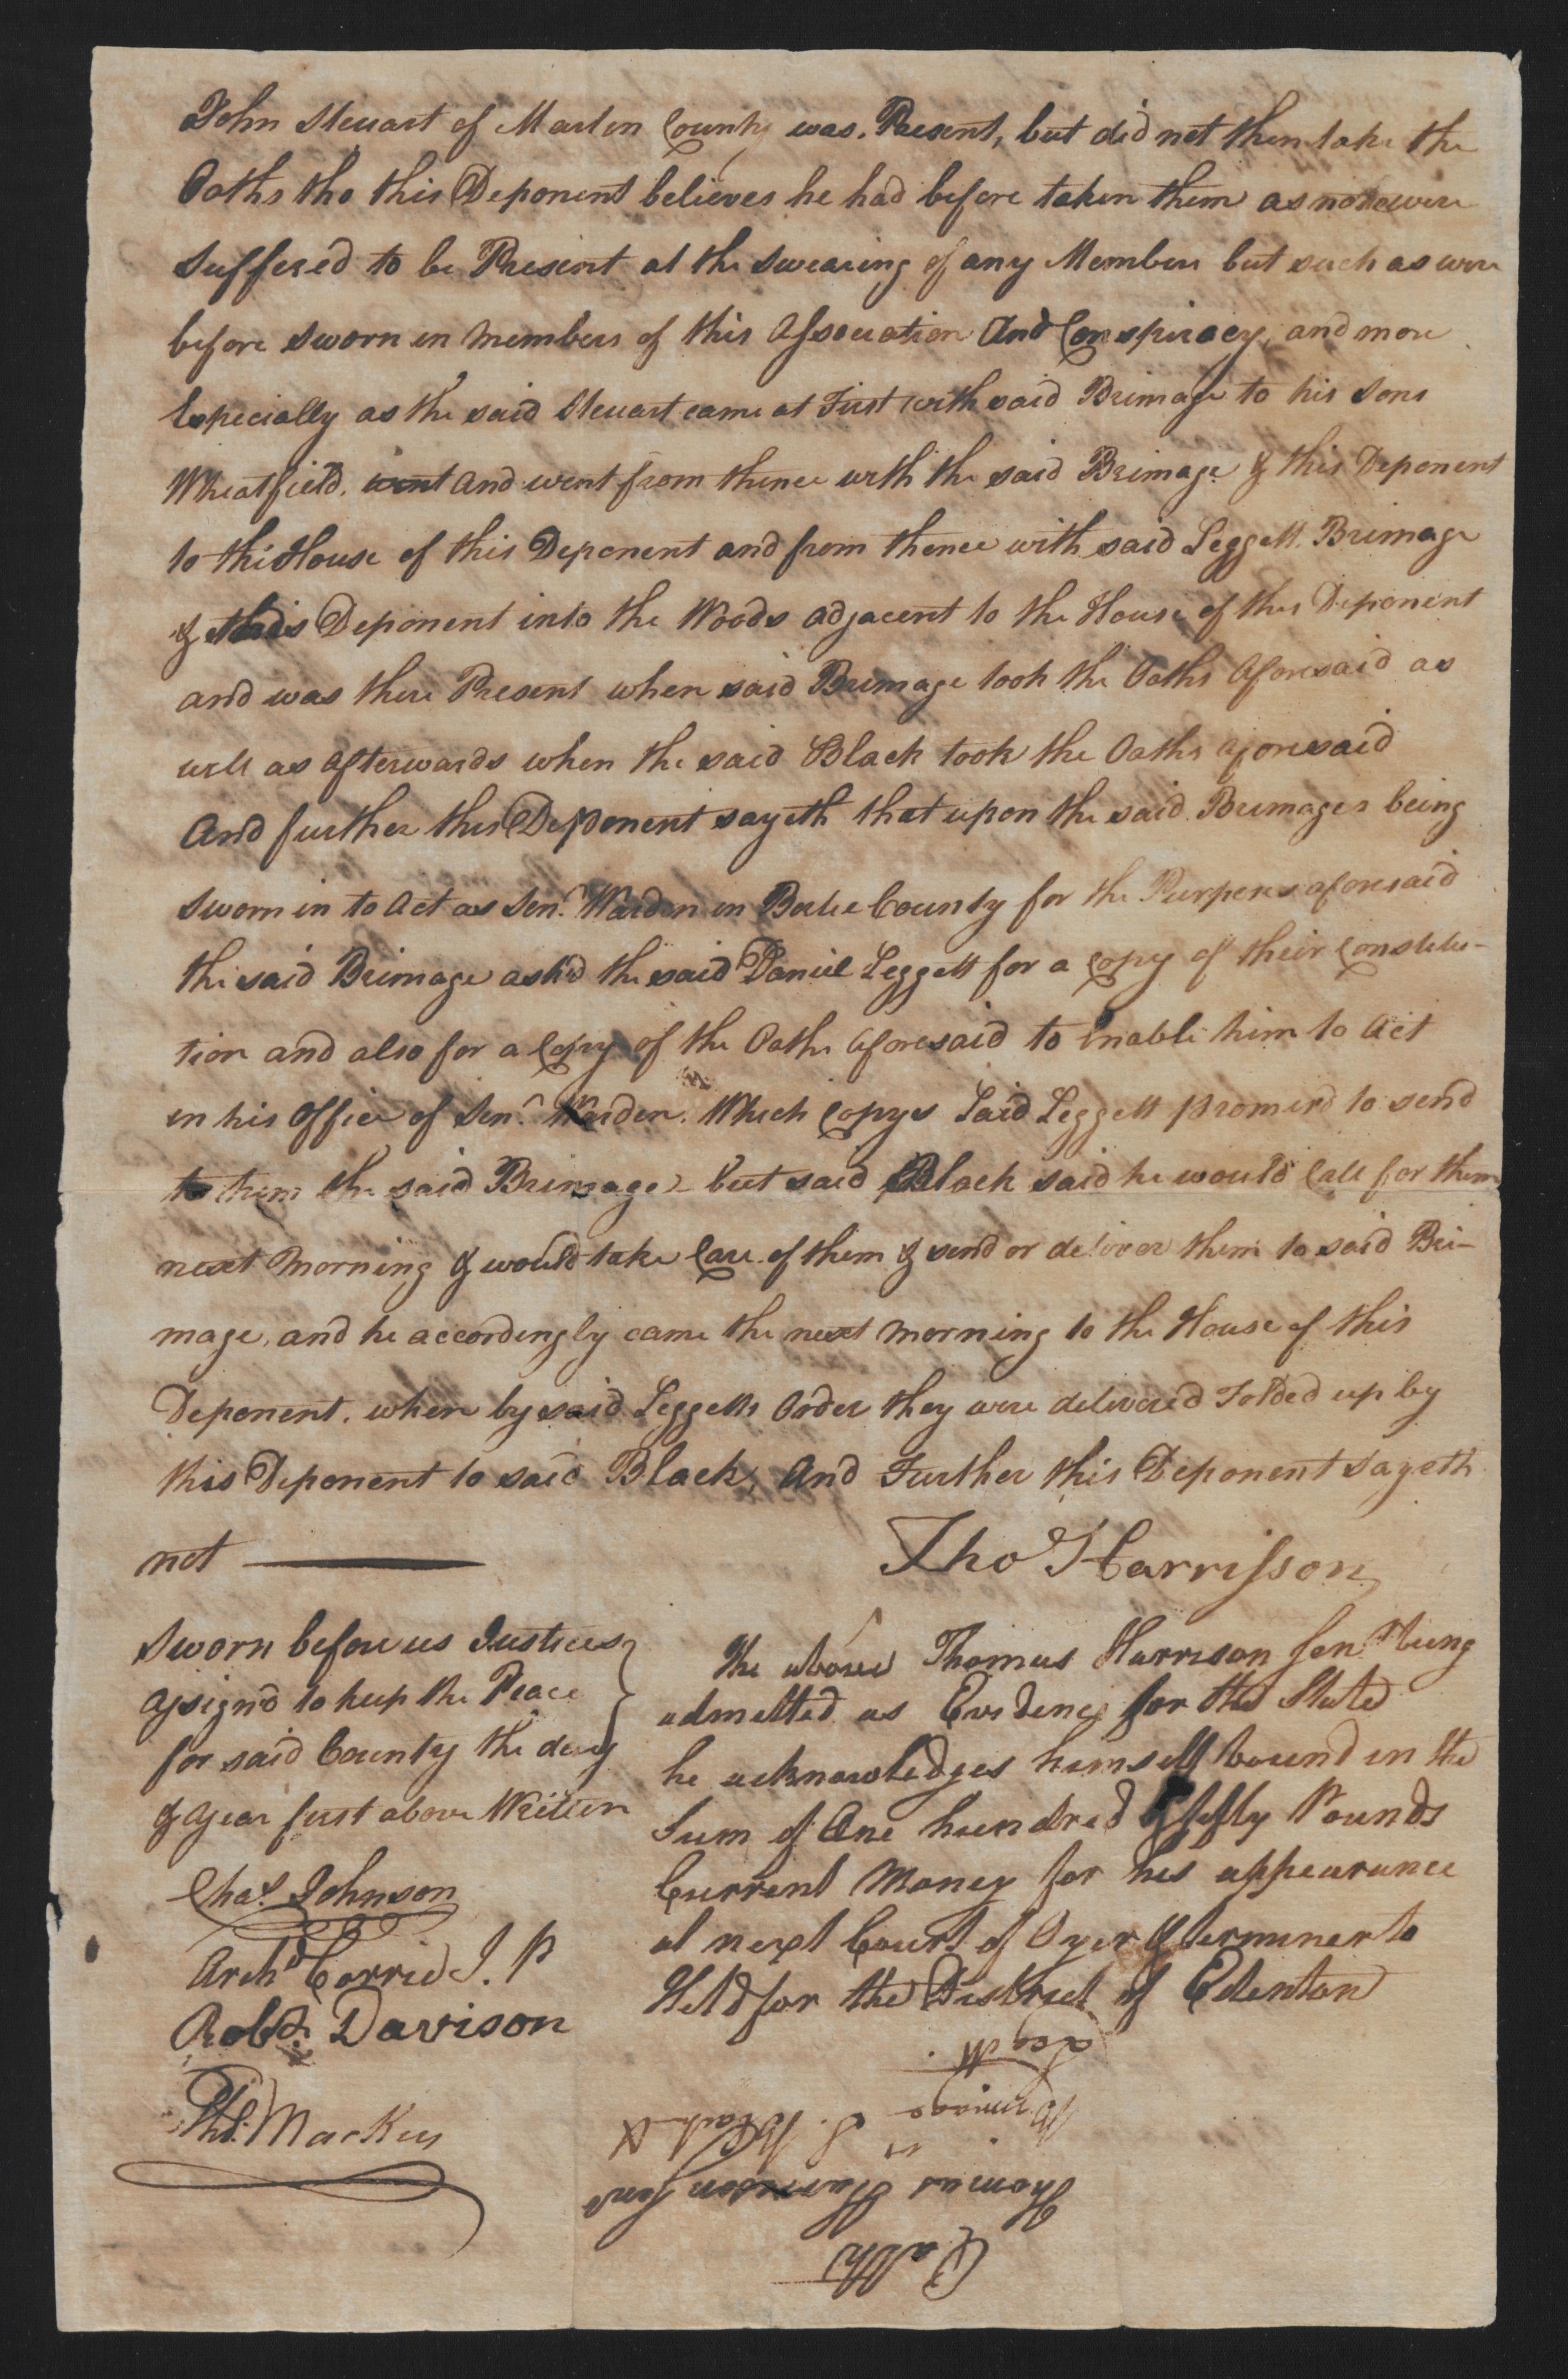 John Steuart of Martin County was Present, but did not then take the
Oaths tho this Deponent believes he had before taken them as none were
Suffered to be Present at the Swearing of any Members but such as were
before sworn in members of this Association And Conspiracy, and more
Especially as the said Steuart came at First with said Brimage to his Sons
Wheatfield, went and went from thence with the said Brimage & this Deponent
to the House of this Deponent and from thence with said Leggett Brimage
& this Deponent into the Woods adjacent to the House of this Deponent
and was there Present when said Brimage took the Oaths Aforesaid as
well as afterwards when the said Black took the Oaths aforesaid
And further this Deponent sayeth that upon the said Brimages being
Sworn in to Act as Senr. Warden in Bertie County for the Purposes aforesaid
the said Brimage ask'd the said Daniel Leggett for a Copy of their Constitu-
tion and also for a Copy of the Oaths aforesaid to Enable him to Act
in his Office of Senr. Warden. Which Copys Said Leggett promis'd to send
to him the said Brimage - but said Black said he would Call for them
next Morning & would take Care of them & send or deliver them to said Bri-
mage, and he accordingly came the next Morning to the House of this
Deponent, when by said Leggetts Order they were delivered Folded up by
this Deponent to said Black, And Further this Deponent sayeth
not
Tho Harrisson
Sworn before us Justices
assign'd to keep the Peace
for said County the day
& year first above Written
Chas. Johnson
Archd Corrie J. P
Robt. Davison
Thos. Mackey
The above Thomas Harrison Senr. being
admitted as Evidence for the State
he acknowledges himself bound in the
Sum of One hundred & fifty Pounds
Current Money for his appearance
at next Court of Oyer & terminer to
Held for the District of Edenton
Oath
Thomas Harrison Senr
Brimage J. Black &
Leggett.